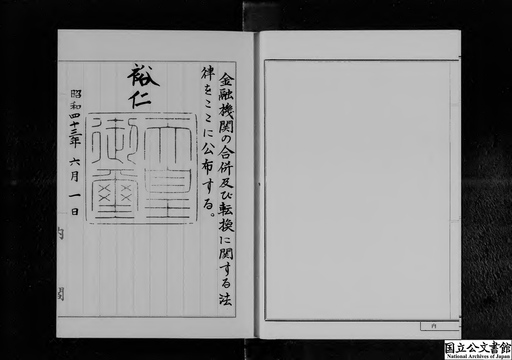 金融機関の合併及び転換に関する法
律をここに公布する。
裕仁
天皇
御璽
昭和四十三年六月一日
内
閣
内
国立公文書館
National Archives of Japan